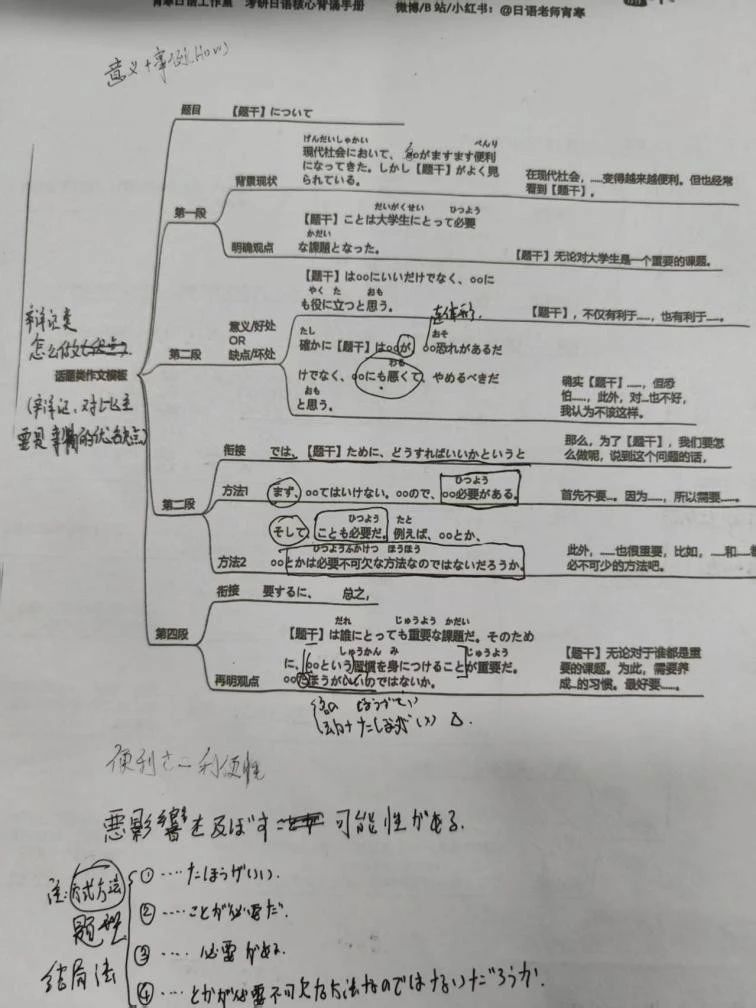 宵寒日语工作室 考研日语核心背诵手册 微博/B站/小红书：@日语老师宵寒
意义+事例(How)
题目 【题干】について
げんだいしゃかい べんり
现代社会において、○○がますます便利
になってきた。しかし【题干】がよく見
られている。
背景现状
在现代社会，……变得越来越便利。但也经常
看到【题干】。
第一段
だいがくせい ひつよう
【题干】ことは大学生にとって必要
かだい
な課題となった。
明确观点
【题干】无论对大学生是一个重要的课题。
【题干】は○○にいいだけでなく、○○に
やく た おも
も役に立つと思う。
【题干】，不仅有利于……，也有利于……。
意义/好处
OR
缺点/坏处
第二段
连体形
たし おそ
確かに【题干】は○○が、○○恐れがあるだ
わる
けでなく、○○にも悪くて、やめるべきだ
おも
と思う。
确实【题干】……，但恐
怕……，此外，对…也不好，
我认为不该这样。
辩证类
怎么做
话题类作文模板
(辩证、对比主
要是 的优缺点)
衔接 では、【题干】ために、どうすればいいかというと
那么，为了【题干】，我们要怎
么做呢，说到这个问题的话，
ひつよう
方法1 まず、○○てはいけない。○○ので、○○必要がある。
首先不要…。因为……，所以需要……。
第二段
ひつよう たと
そして ことも必要だ。例えば、○○とか、
ひつようふかけつ ほうほう
方法2 ○○とかは必要不可欠な方法なのではないだろうか。
此外，……也很重要，比如，……和……
必不可少的方法吧。
衔接 要するに、 总之，
第四段
だれ じゅうよう かだい
【题干】は誰にとっても重要な課題だ。そのため
しゅうかん み じゅうよう
に、○○という習慣を身につけることが重要だ。
再明观点 ○○たほうがいいのではないか。
【题干】无论对于谁都是重
要的课题。为此，需要养
成…的习惯。最好要……。
便利さ＝利便性
悪影響を及ぼす 可能性がある.
注:方式方法
题型
结局法
① ‥‥たほうがいい.
② ‥‥ことが必要だ.
③ ‥‥ 必要がある.
④ ‥‥とかが必要不可欠な方法なのではないだろうか.